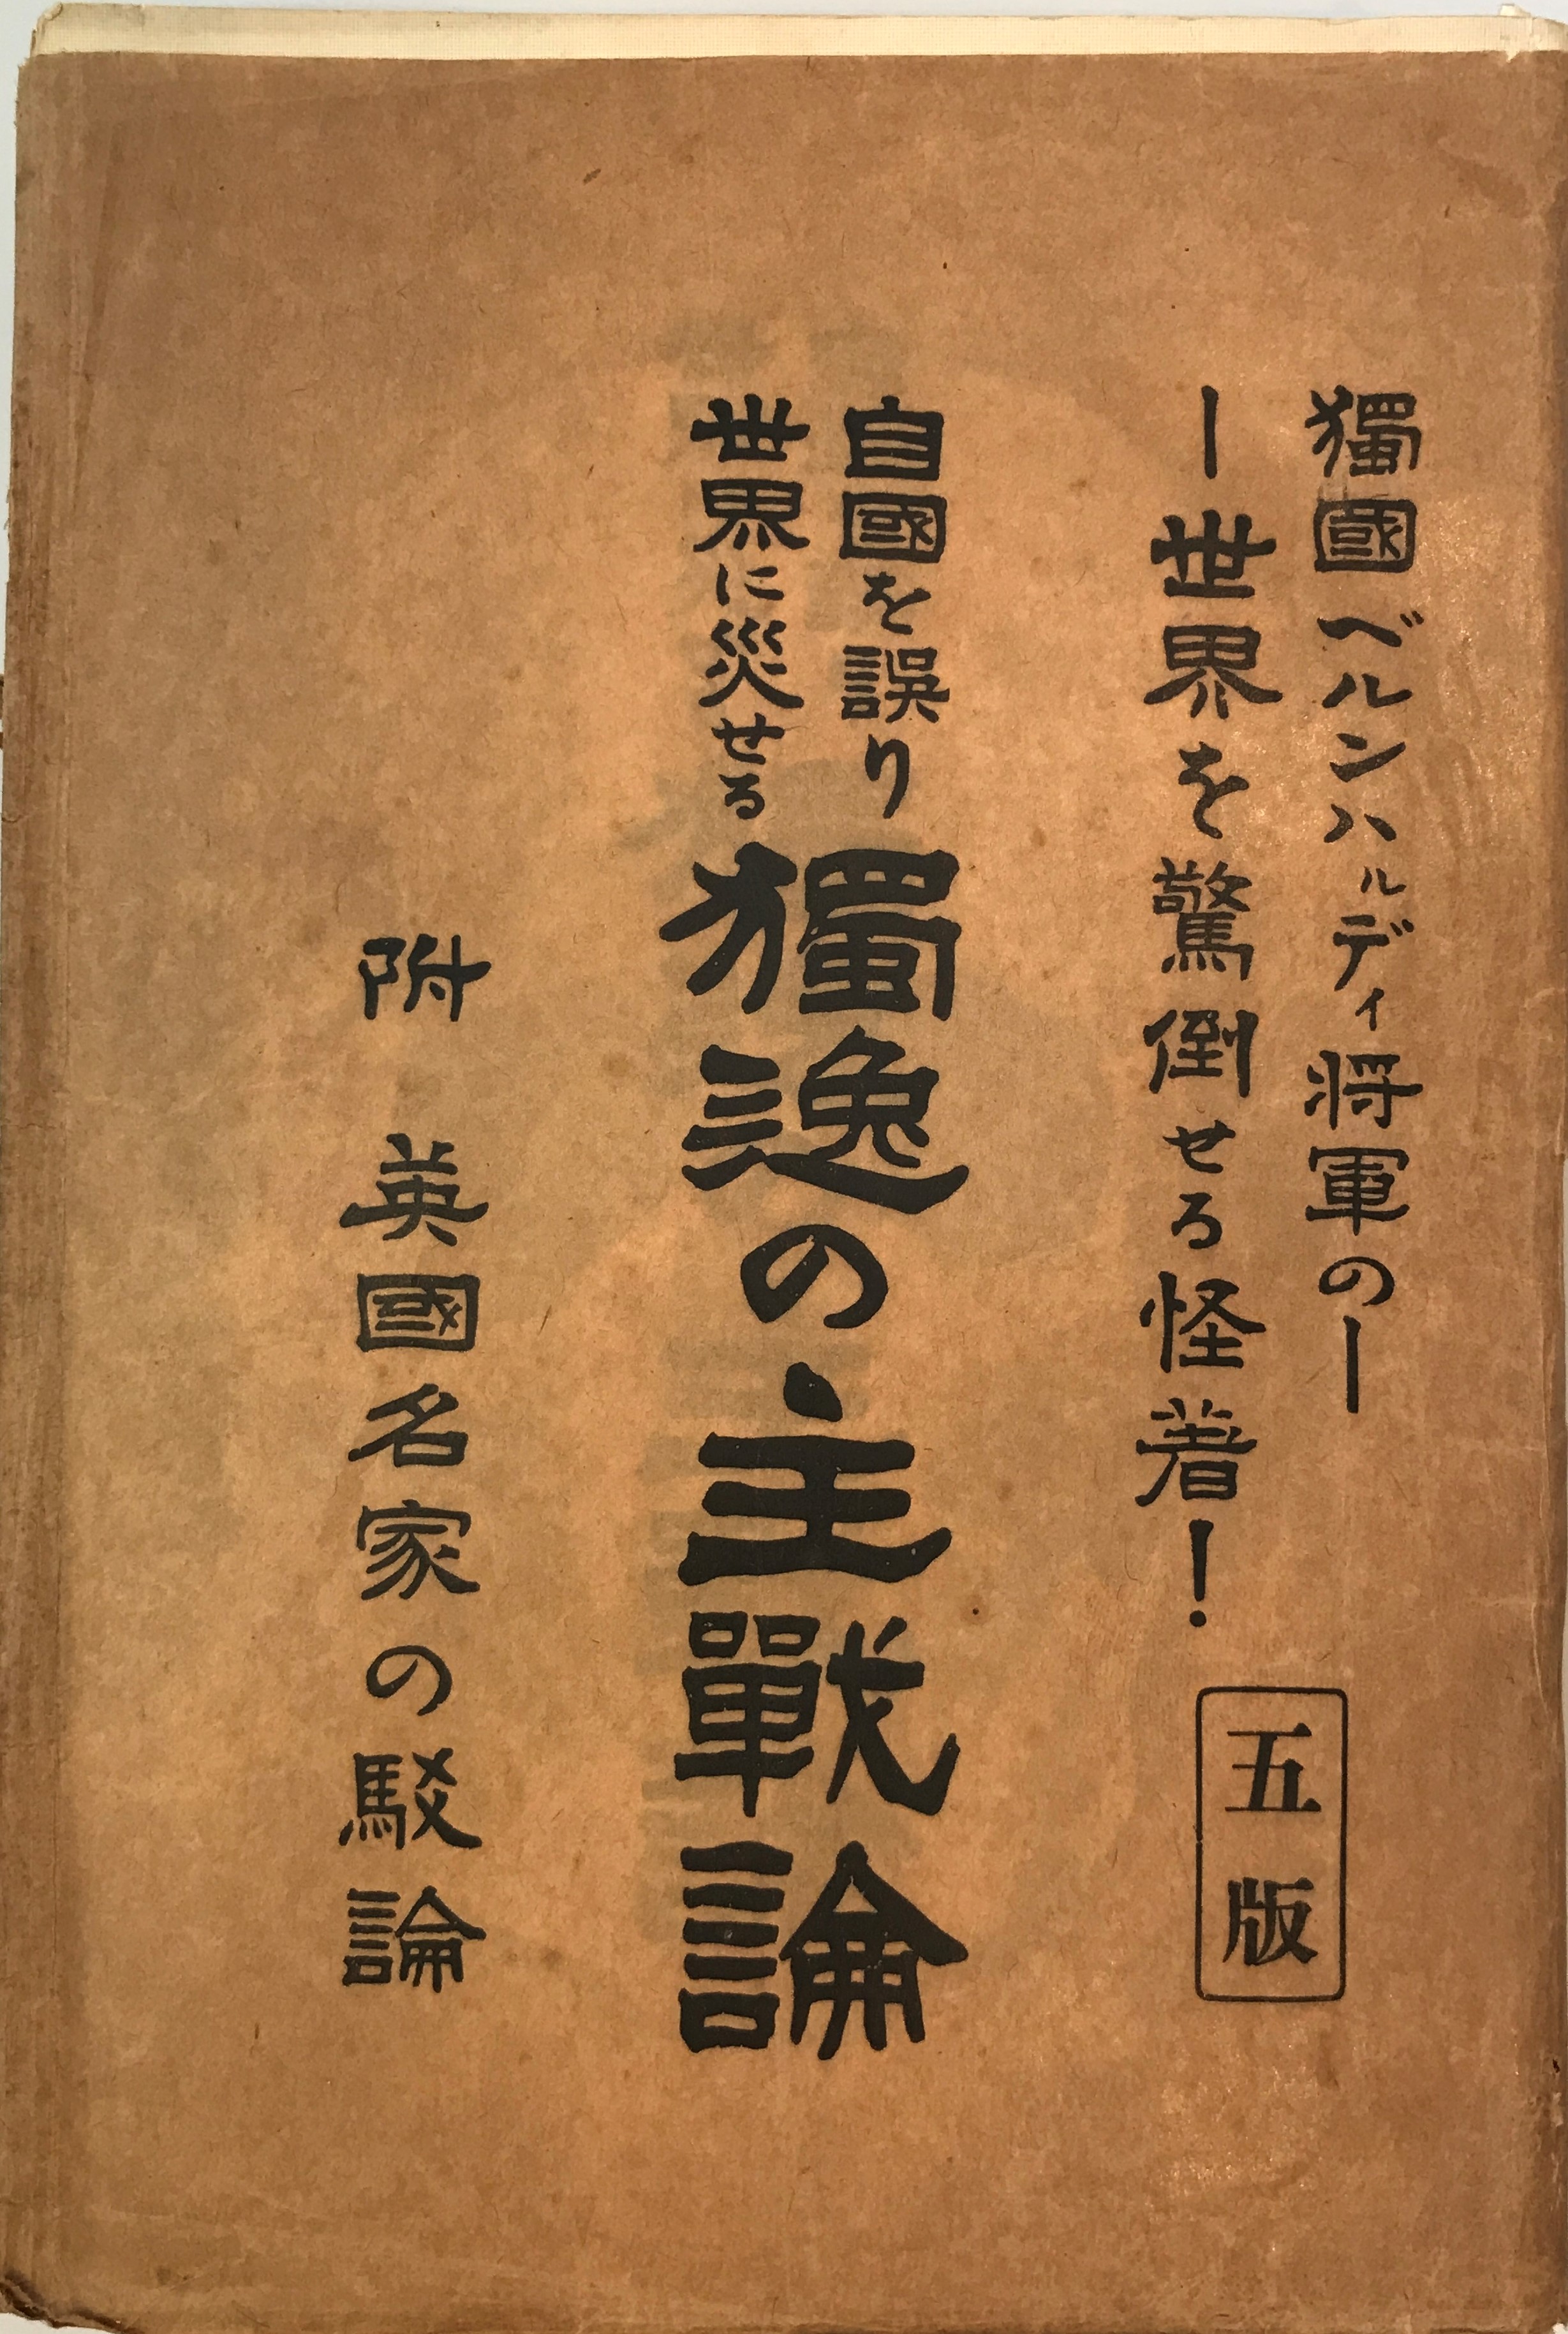 獨國ベルンハルディ将軍の―
―世界を驚倒せる怪著!
五版
自國を誤り
世界に災せる
獨逸の主戰論
附 英國名家の駁論